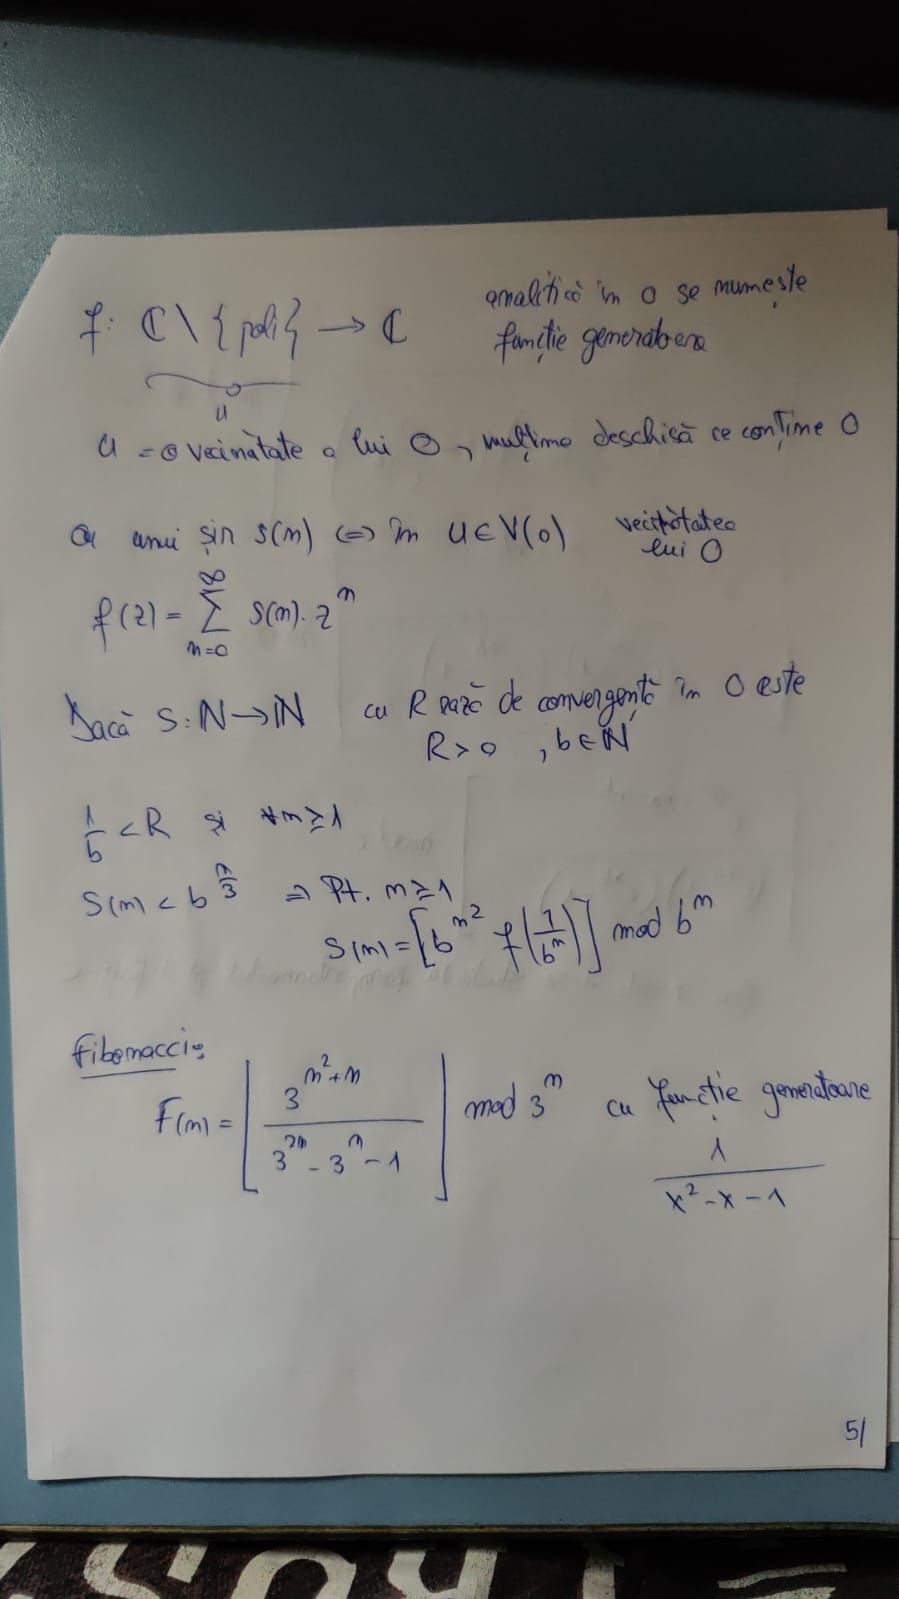 f: ℂ \ {poli} → ℂ analitică în 0 se numește
funcție generatoare
U
U = o vecinătate a lui 0, mulțime deschisă ce conține 0
a unui șir s(n) ⇔ în U ∈ V(0) vecinătatea
lui 0
f(z) = ∑_{n=0}^{∞} s(n). z^n
Dacă s: ℕ → ℕ cu R rază de convergență în 0 este
R > 0 , b ∈ ℕ
1/b < R și ∀n ≥ 1
s(n) < b^{n/3} ⇒ Pt. n ≥ 1
s(n) = [b^{n^2} f(1/b^n)] mod b^n
Fibonacci:
F(n) = ⌊ 3^{n^2+n} / (3^{2n} - 3^n - 1) ⌋ mod 3^n cu funcție generatoare
1 / (x^2 - x - 1)
5/